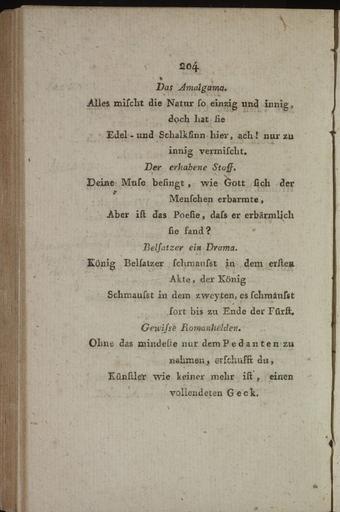 204
Das Amalgama.
Alles miſcht die Natur ſo einzig und innig,
doch hat ſie
Edel- und Schalkſinn hier, ach! nur zu
innig vermiſcht.
Der erhabene Stoff.
Deine Muſe beſingt, wie Gott ſich der
Menſchen erbarmte,
Aber iſt das Poeſie, daſs er erbärmlich
ſie fand?
Belſatzer ein Drama.
König Belſatzer ſchmauſst in dem erſten
Akte, der König
Schmauſst in dem zweyten, es ſchmauſst
fort bis zu Ende der Fürſt.
Gewiſſe Romanhelden.
Ohne das mindeſte nur dem Pedanten zu
nehmen, erſchufſt du,
Künſtler wie keiner mehr iſt, einen
vollendeten Geck.